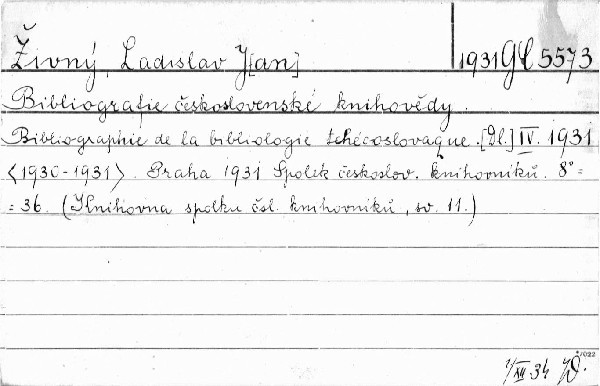 Živný, Ladislav J[an] 1931 Gl 5573
Bibliografie československé knihovědy.
Bibliographie de la bibliologie tchécoslovaque. [Dl.] IV. 1931
<1930-1931>. Praha 1931 Spolek českoslov. knihovníků. 8° =
= 36. (Knihovna spolku čsl. knihovníků, sv. 11.)
7022
1/XII 34